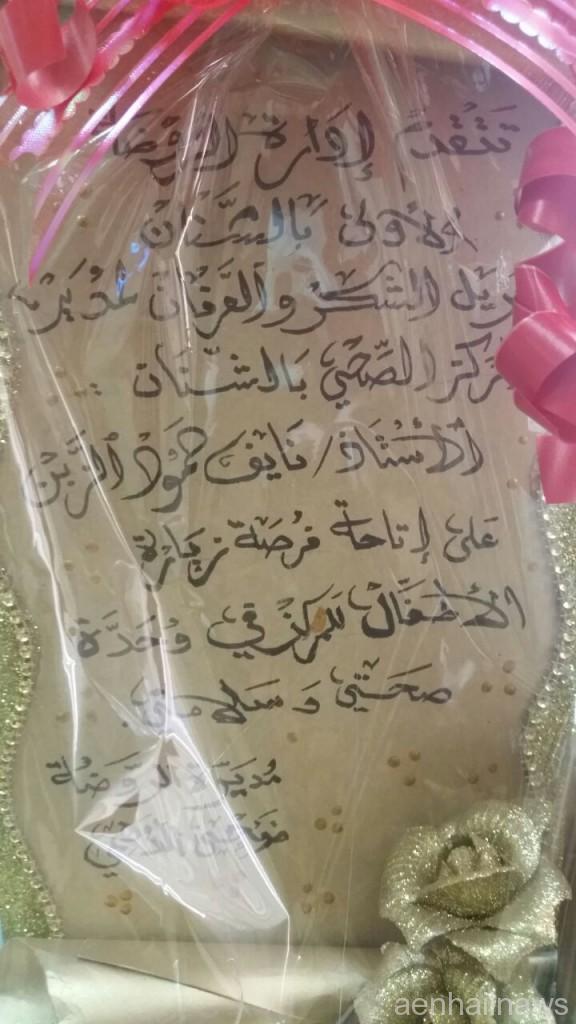 تتقدم إدارة الروضة
الأولى بالشنان
الشكر والعرفان لمدير
المركز الصحي بالشنان ..
الأستاذ / نايف حمود الزبن
على إتاحة فرصة زيارة
الأطفال للمركز في وحدة
صحتي وسلامتي.
مديرة الروضة
aenhailnaws